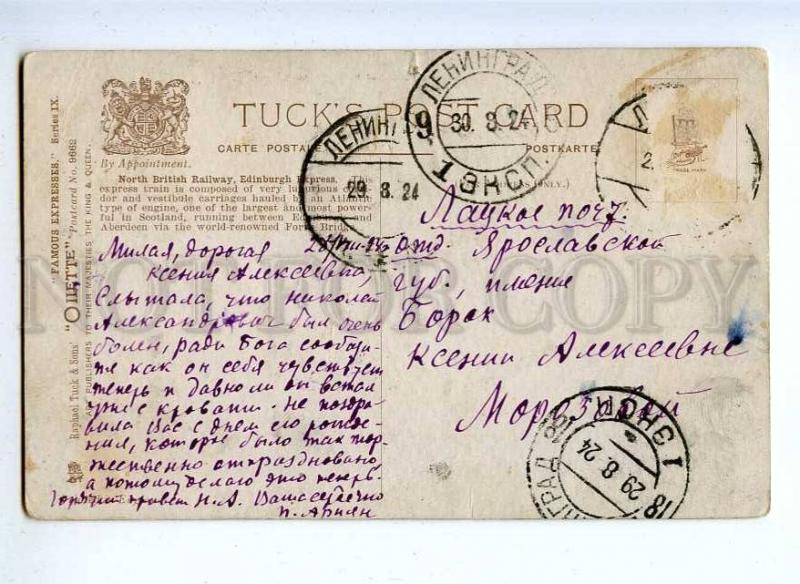 TUCK'S POST CARD
CARTE POSTALE
POSTKARTE
By Appointment.
North British Railway, Edinburgh Express. This
express train is composed of very luxurious corri-
dor and vestibule carriages hauled by an Atlantic
type of engine, one of the largest and most power-
ful in Scotland, running between Edinburgh and
Aberdeen via the world-renowned Forth Bridge.
"FAMOUS EXPRESSES." Series IX.
"OILETTE" Postcard No. 9662
Raphael Tuck & Sons'
ART PUBLISHERS TO THEIR MAJESTIES THE KING & QUEEN.
TRADE MARK
ЛЕНИНГРАД
9
30. 8. 24
1 ЭКСП.
ЛЕНИНГ
29 8. 24
Милая, дорогая
Ксения Алексеевна,
Слыхала, что Николай
Александрович был очень
болен, ради Бога сообщи-
те как он себя чувствует
теперь и давно ли он встал
уже с кровати. Не поздра-
вила Вас с днем его рожде-
ния, которые было так тор-
жественно отпраздновано
а потому делаю это теперь.
привет Н.А. Ваша
П. Ариян
почт.
отд. Ярославской
губ., имение
Борок
Ксении Алексеевне
Морозовой
1 ЭКСП.
29 8 24
18
НГРАД
NOT FOR COPY